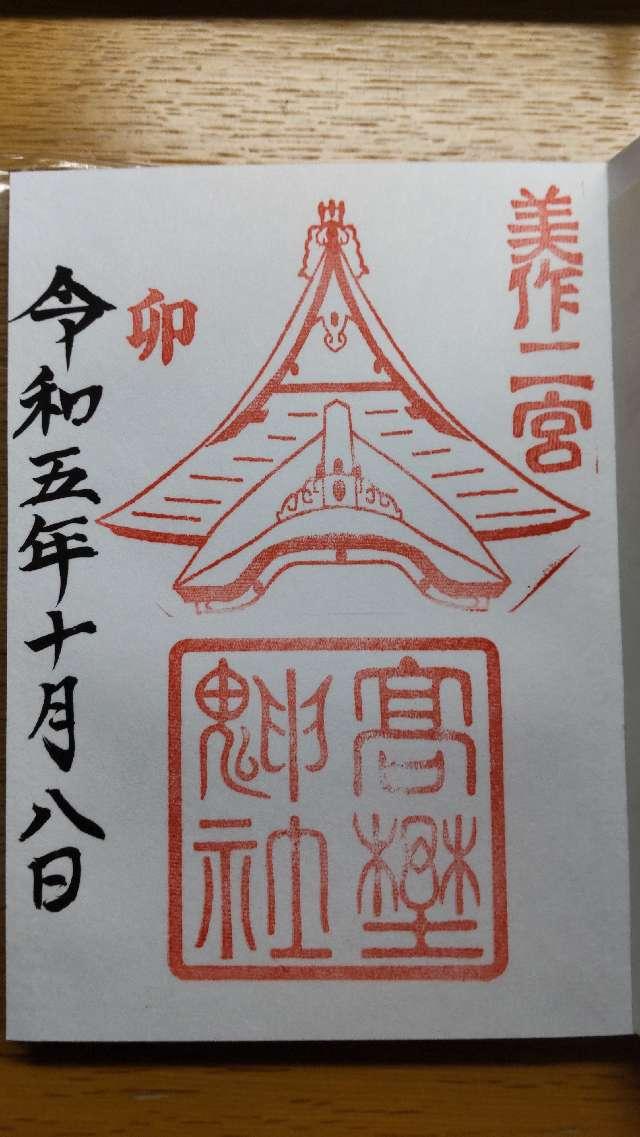 美作二宮
卯
髙野
神社
令和五年十月八日